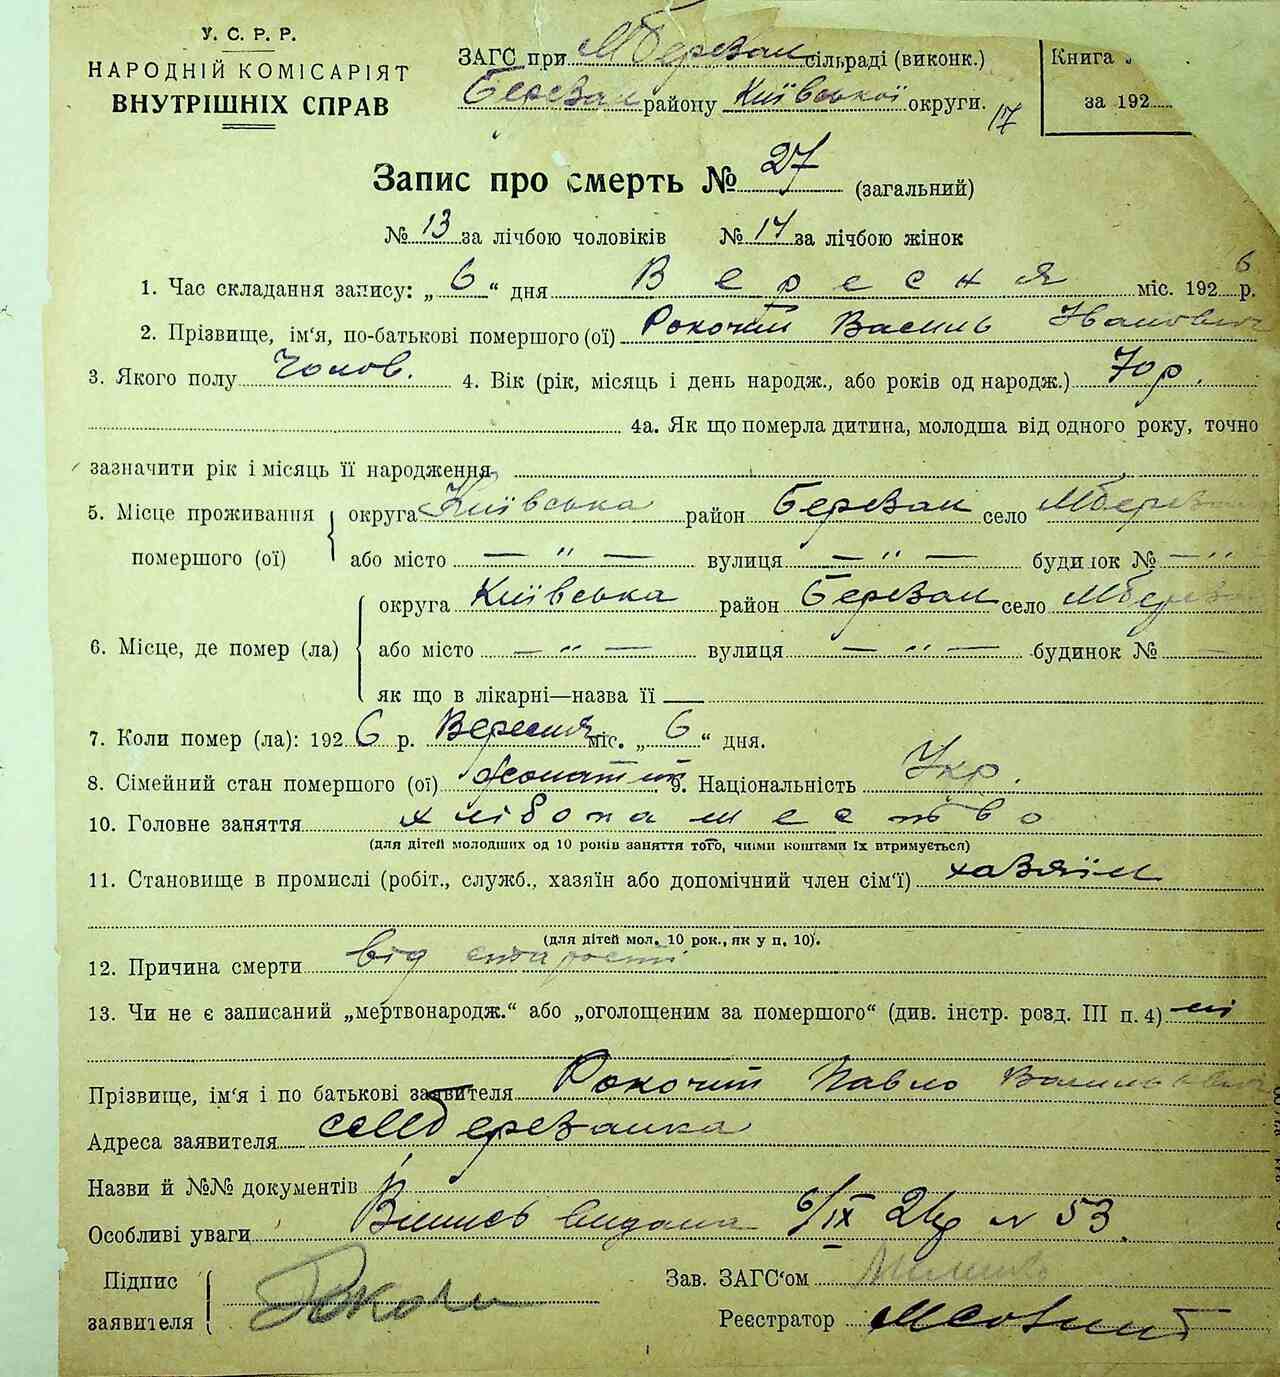 У. С. Р. Р.
НАРОДНІЙ КОМІСАРІЯТ
ВНУТРІШНІХ СПРАВ
ЗАГС при МБерезан сільраді (виконк.)
Березан району Київської округи.
17
Книга
за 192
Запис про смерть № 27 (загальний)
№ 13 за лічбою чоловіків № 14 за лічбою жінок
1. Час складання запису: „ 6 “ дня Вересня міс. 1926 р.
2. Прізвище, ім‘я, по-батькові помершого (ої) Рокочит Василь Іванович
3. Якого полу Чолов. 4. Вік (рік, місяць і день народж., або років од народж.) 70 р.
4а. Як що померла дитина, молодша від одного року, точно
зазначити рік і місяць її народження
5. Місце проживання помершого (ої) округа Київська район Березан село МБерезан
або місто — " — вулиця — " — будинок № — "
6. Місце, де помер (ла) округа Київська район Березан село МБерезан
або місто — " — вулиця — " — будинок № —
як що в лікарні—назва її —
7. Коли помер (ла): 1926 р. Вересня міс. „ 6 “ дня.
8. Сімейний стан помершого (ої) жонатий 9. Національність Укр.
10. Головне заняття хлібопашество
(для дітей молодших од 10 років заняття того, чиїми коштами їх втримується)
11. Становище в промислі (робіт., служб., хазяїн або допомічний член сім‘ї) хазяїн
(для дітей мол. 10 рок., як у п. 10).
12. Причина смерти від старості
13. Чи не є записаний „мертвонародж.“ або „оголошеним за помершого“ (див. інстр. розд. III п. 4) ні
Прізвище, ім‘я і по батькові заявителя Рокочит Павло Васильович
Адреса заявителя с МБерезанка
Назви й №№ документів
Особливі уваги Випись видана 6/IX 26р № 53.
Підпис заявителя
Зав. ЗАГС‘ом
Реєстратор